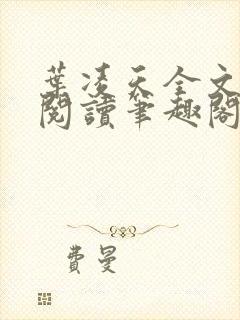 葉凌天全文
閱讀筆趣閣
費曼